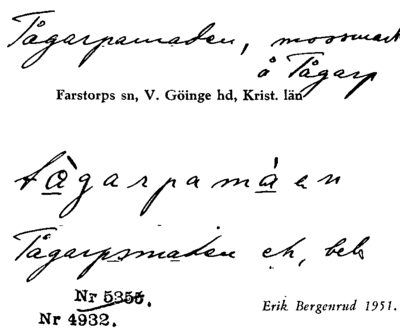 Tågarpamaden, mossmark
å Tågarp
Farstorps sn, V. Göinge hd, Krist. län
tàgarpamàen
Tågarpsmaden ek, beb
Nr 5355.
Nr 4932.
Erik Bergenrud 1951.